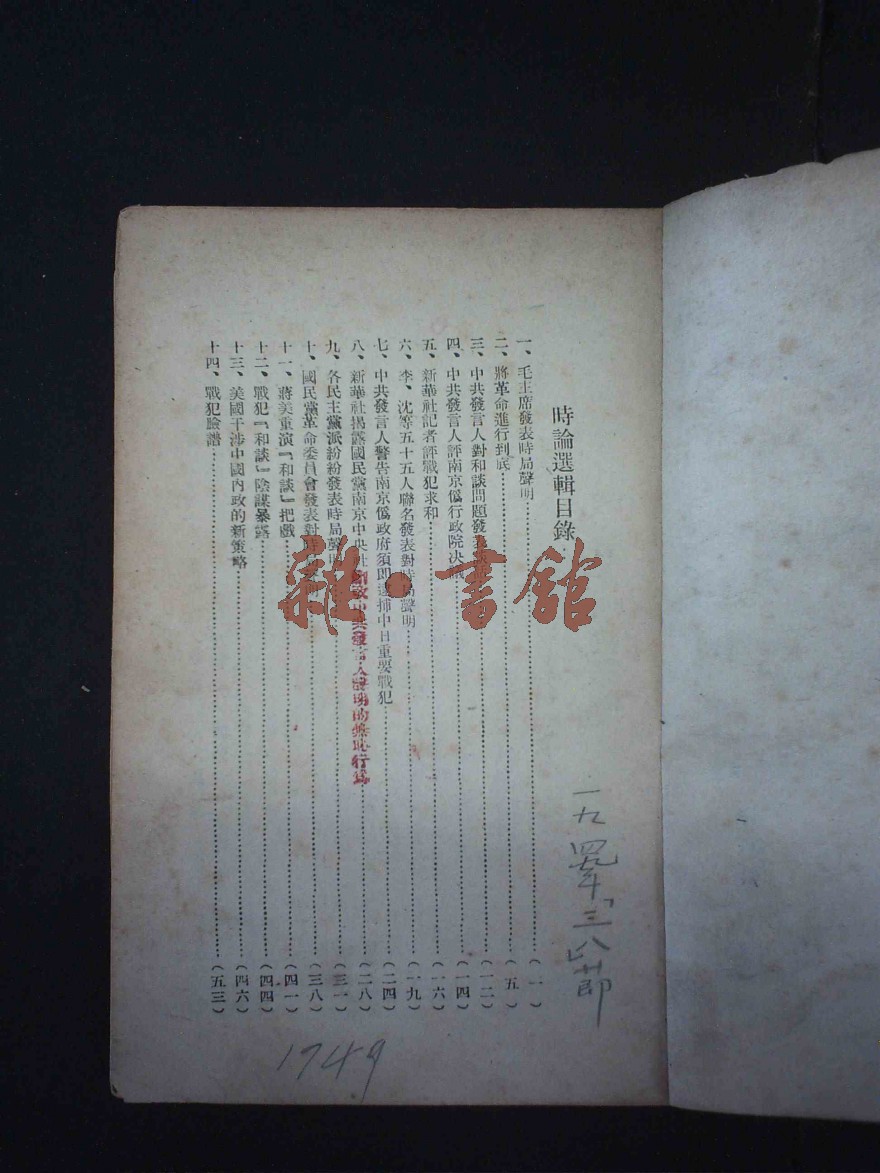 時論選輯目錄
一、毛主席發表時局聲明（一）
二、將革命進行到底（五）
三、中共發言人對和談問題發表（一二）
四、中共發言人評南京僞行政院決（一四）
五、新華社記者評戰犯求和（一六）
六、李、沈等五十五人聯名發表對時局聲明（一九）
七、中共發言人警告南京僞政府須即逮捕中日重要戰犯（二四）
八、新華社揭露國民黨南京中央社中共發言人聲明的無恥行爲（二八）
九、各民主黨派紛紛發表時局聲明（三一）
十、國民黨革命委員會發表對時（三八）
十一、蔣美重演『和談』把戲（四一）
十二、戰犯『和談』陰謀暴露（四四）
十三、美國干涉中國內政的新策略（四六）
十四、戰犯臉譜（五三）
一九四九年三八節
1749
雜·書館